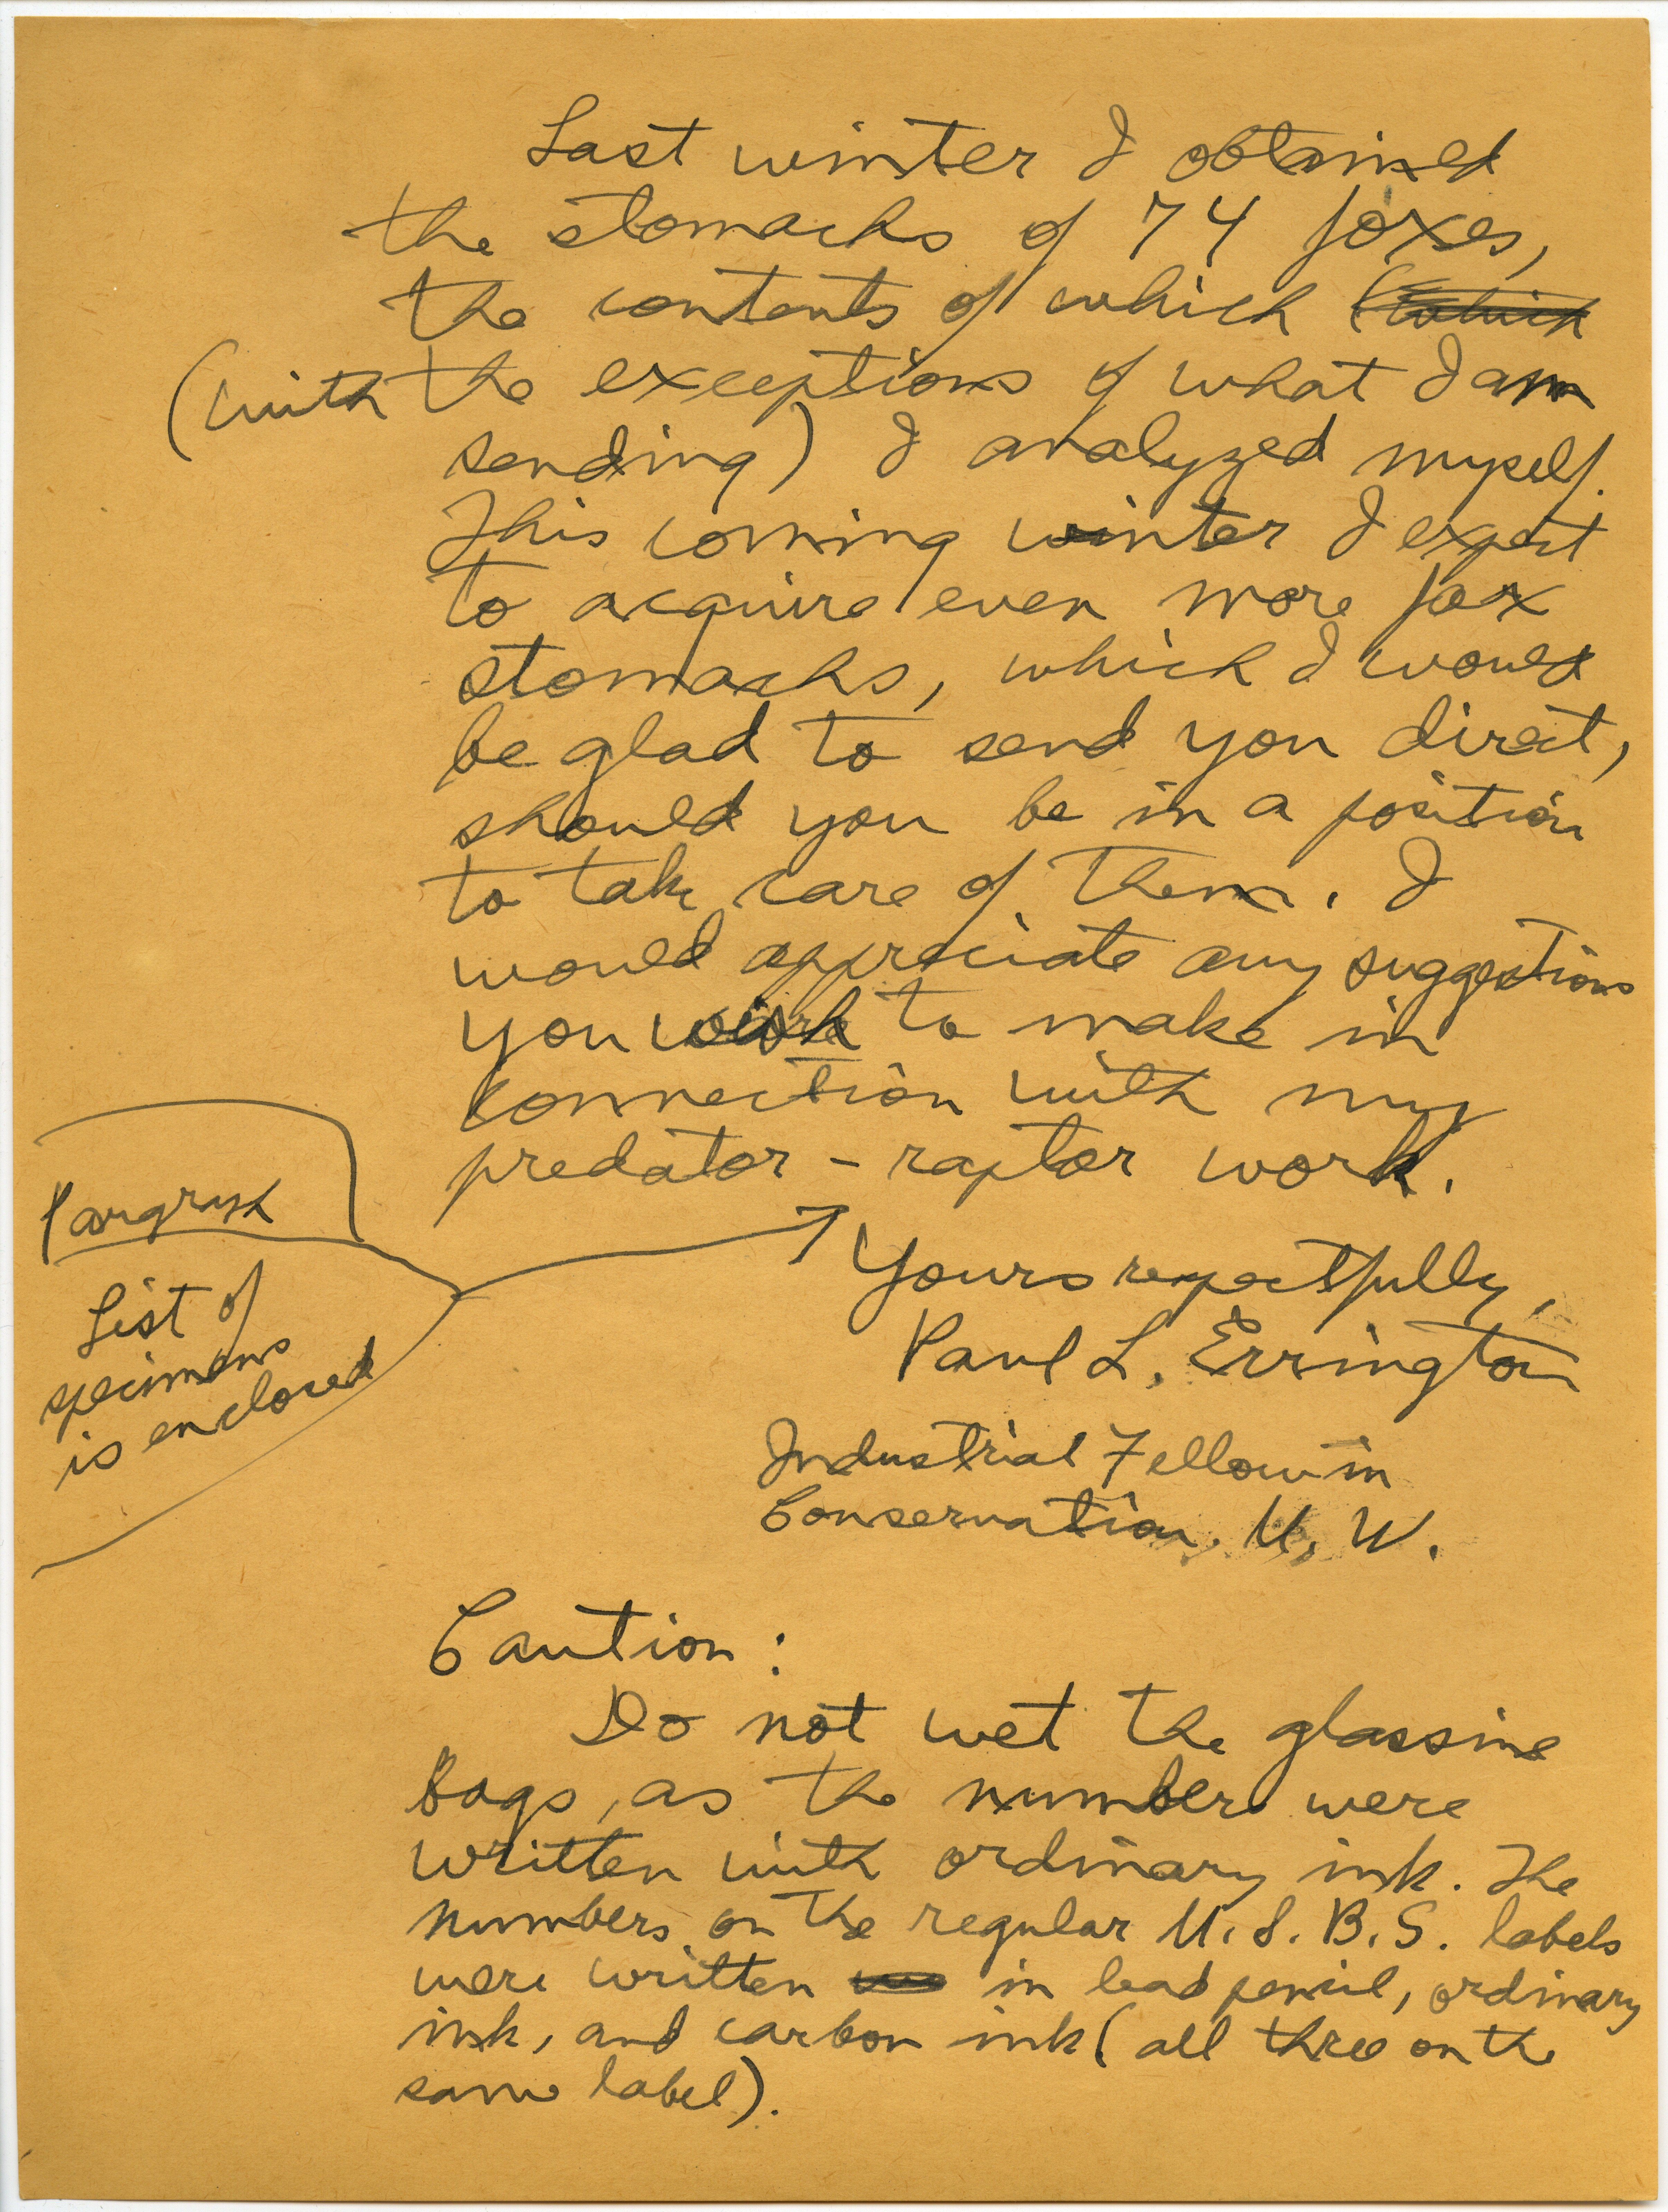 Last winter I obtained
the stomachs of 74 foxes,
the contents of which (which
(with the exceptions of what I am
sending) I analyzed myself.
This coming winter I expect
to acquire even more fox
stomachs, which I would
be glad to send you direct,
should you be in a position
to take care of them. I
would appreciate any suggestions
you wish to make in
connection with my
predator - raptor work.
Pargraph
List of
specimens
is enclosed
Yours respectfully,
Paul L. Errington
Industrial Fellow in
Conservation, U. W.
Caution:
Do not wet the glassine
bags, as the numbers were
written with ordinary ink. The
numbers on the regular U.S.B.S. labels
were written in lead pencil, ordinary
ink, and carbon ink (all three on the
same label).